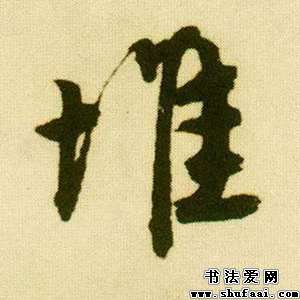 堆
书法爱网
www.shufaai.com